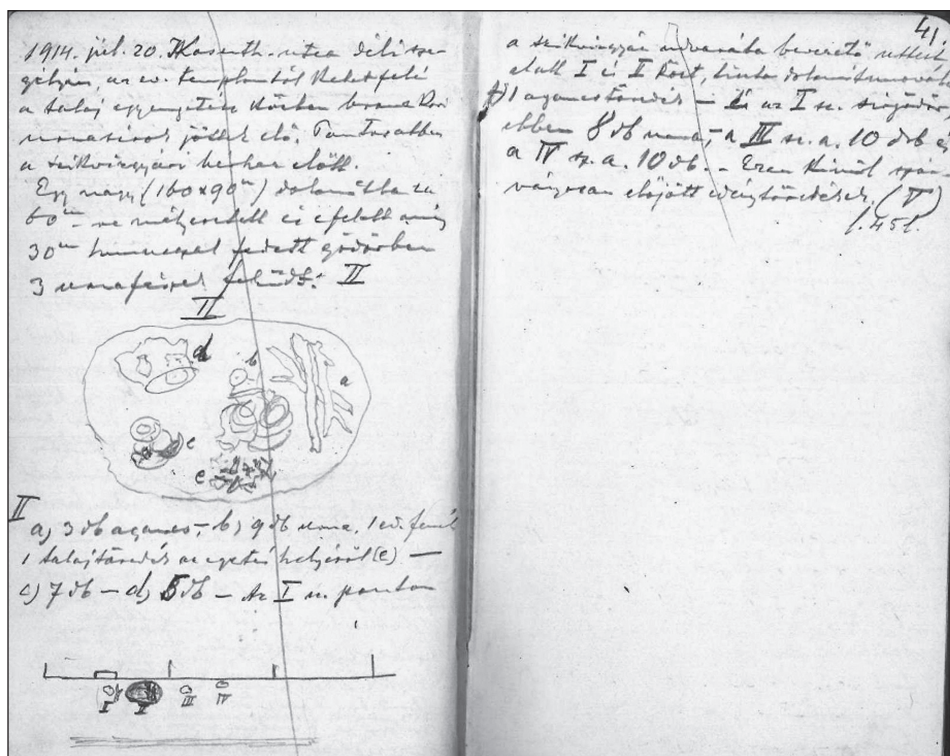 1914. júl. 20. Kossuth-utca déli sze-
gélyén, az ev. templomtól Keletfelé
a talaj egyengetése közben bronzkori
urnasírok jöttek elő. Pontosabban
a szikvízgyári
Egy nagy (160x90 cm) dolomitba
60 cm-re mélyesztett és efelett még
30 cm humusszal fedett gödörben
3 II
II
d
b
a
c
e
II
a) 3 db agancs, - b) 9 db urna, 1 
1 talajtöredék az égetés helyéről (e) —
c) 7 db — d) 5 db — Az I sz. pontban
I II III IV
41.
a szikvízgyár udvarába bevezető 
alatt I és II közt, tiszta 
1 agancstöredék — És az I sz. sírgödör
ebben 8 db urna, a III sz. a. 10 drb és
a IV sz. a. 10 db. - Ezen kívül szór-
ványosan előjött edénytöredékek. (V)
l. 45 l.